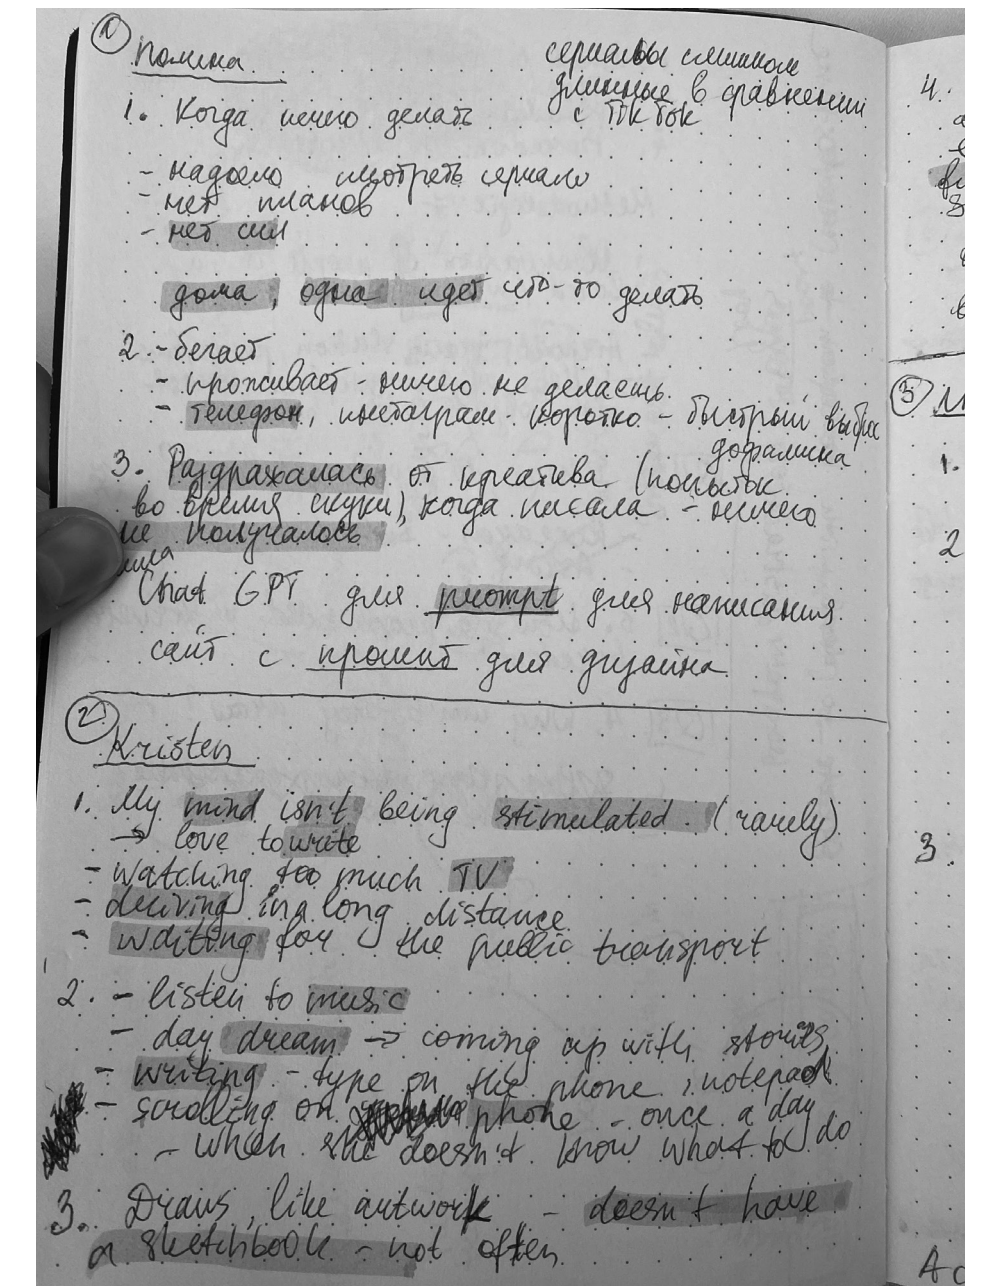 1
Полина
сериалы слишком
длинные в сравнении
с ТикТок
1. Когда нечего делать
- надоело смотреть сериало
- нет планов
- нет сил
дома, одна идет что-то делать
2. - бегает
- проживает - ничего не делаешь
- телефон, инстаграм - коротко - быстрый выброс
дофамина
3. Раздражалась от креатива (попыток
во время скуки), когда писала - ничего
не получалось
Chat GPT для prompt для написания
сайт с промпт для дизайна
2
Kristen
1. My mind isn't being stimulated (rarely)
→ love to write
- watching too much TV
- driving in a long distance
- waiting for the public transport
2. - listen to music
- day dream → coming up with stories
- writing - type on the phone, notepad
- scrolling on phone - once a day
- when she doesn't know what to do
3. Draws, like artwork - doesn't have
a sketchbook - not often
4.
3
1.
2
3.